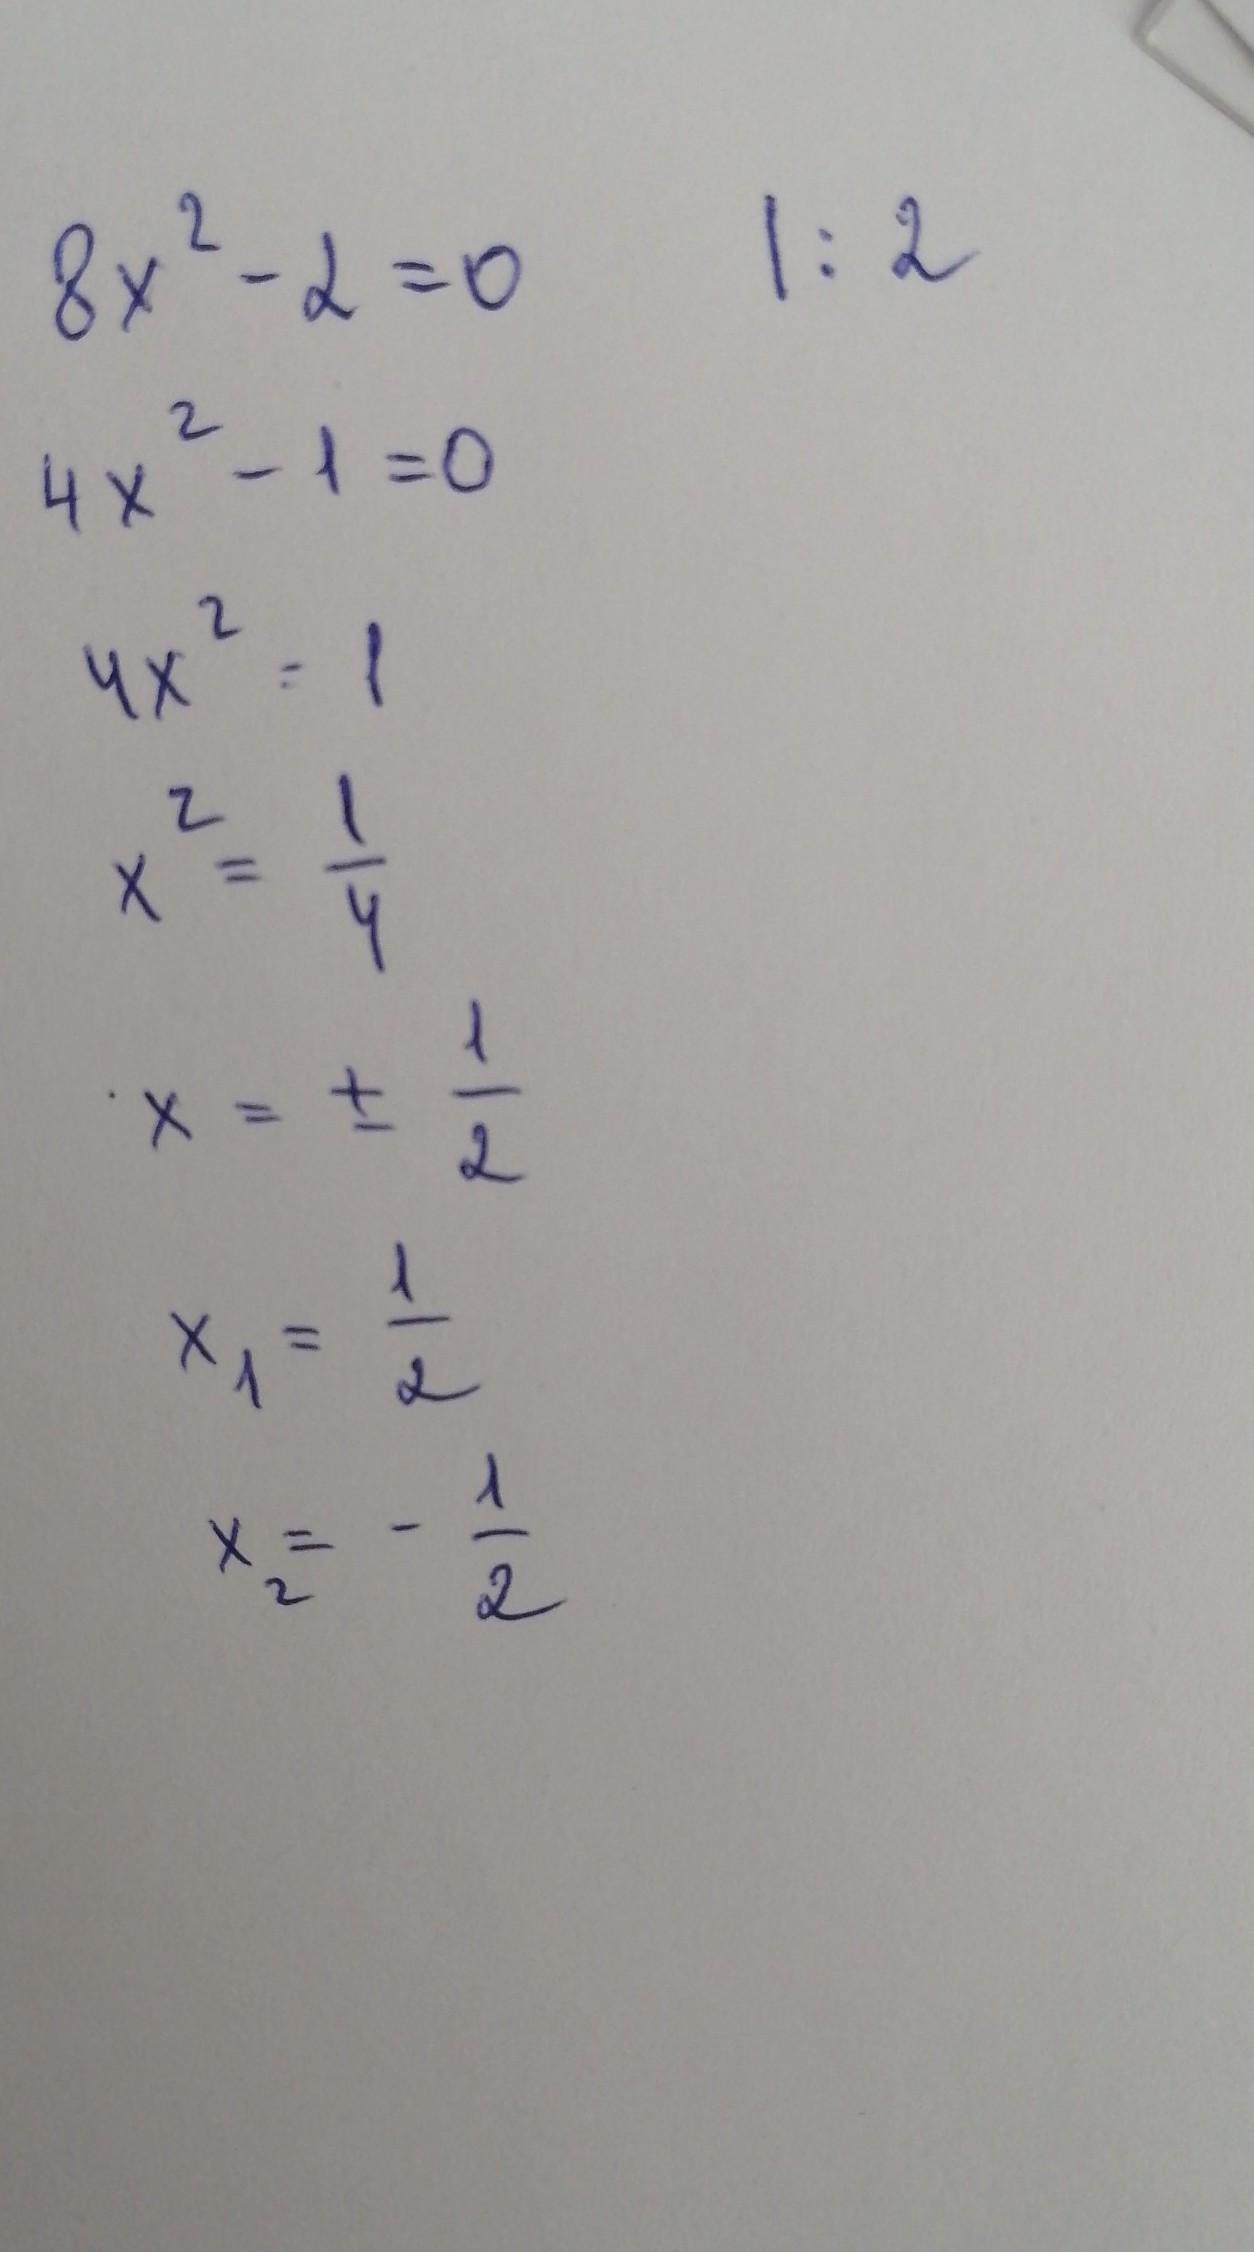 8x² - 2 = 0 | : 2
4x² - 1 = 0
4x² = 1
x² = 1/4
x = ± 1/2
x₁ = 1/2
x₂ = - 1/2